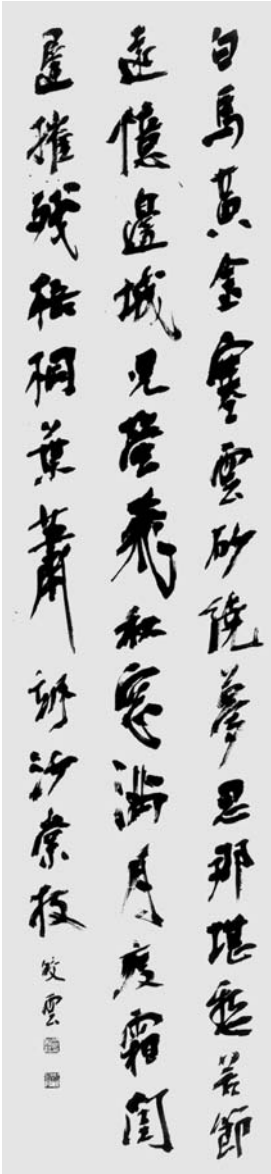 白馬黄金塞雲砂繞夢思那堪愁苦節
遠憶邊城児螢飛秋窓満月度霜閨
遲摧残梧桐葉蕭颯沙棠枝
雲